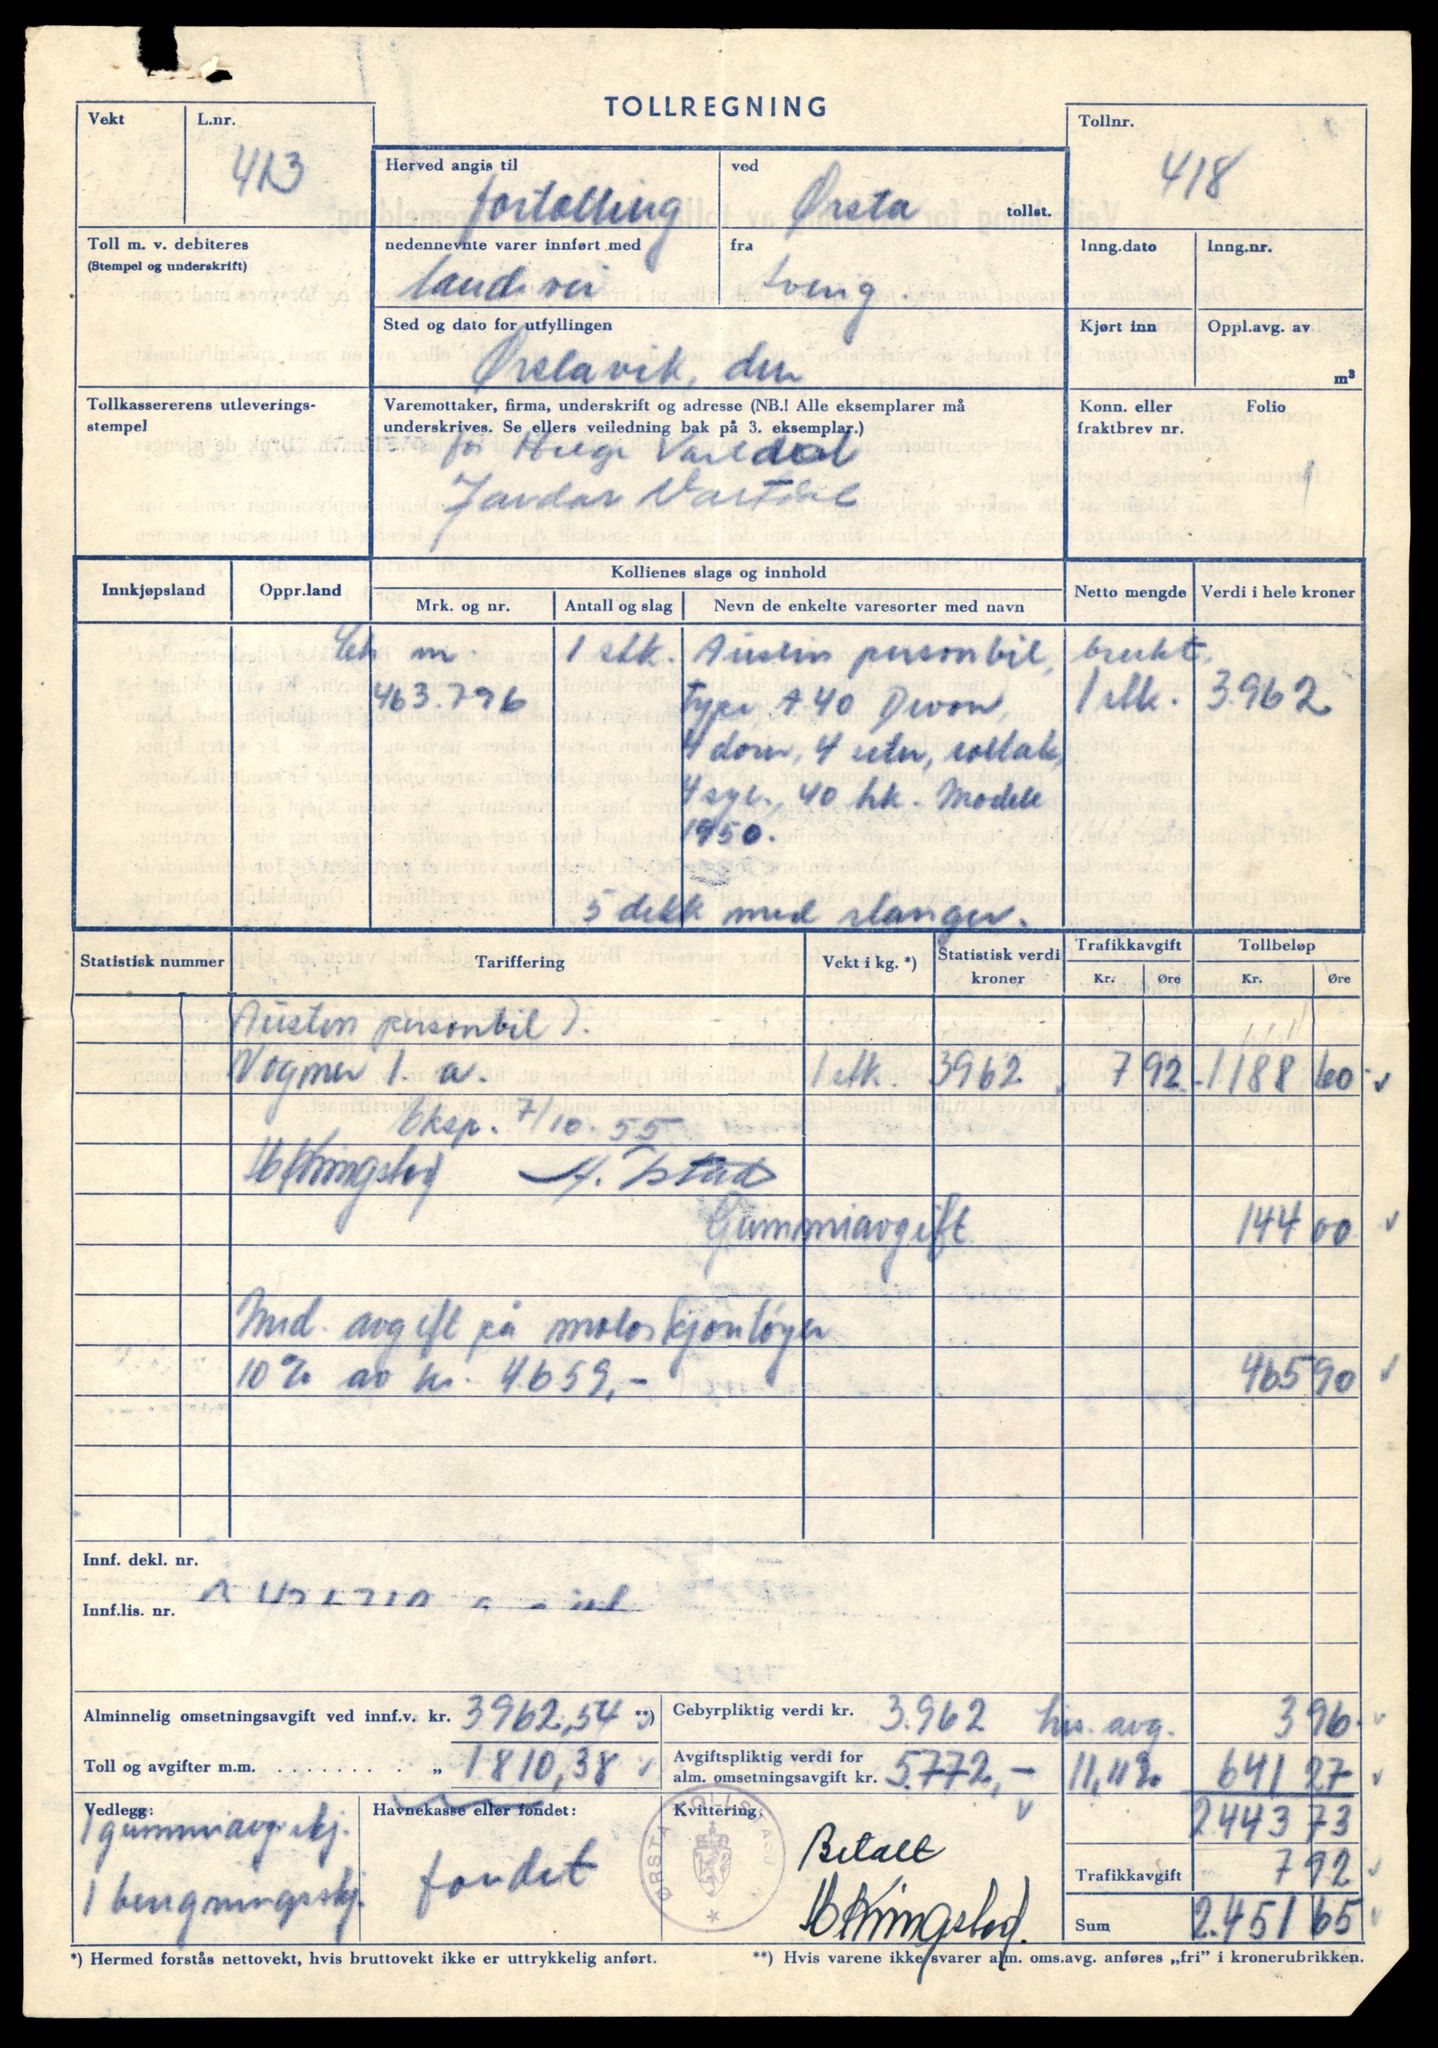 TOLLREGNING
Vekt
L.nr.
413
Herved angis til
fortolling
ved
Ørsta
tollst.
Tollnr.
418
Toll m. v. debiteres
(Stempel og underskrift)
nedennevnte varer innført med
landevei
fra
Inng.dato
Inng.nr.
Sted og dato for utfyllingen
Ørstavik, den
Kjørt inn
Oppl.avg. av
m³
Tollkassererens utleverings-
stempel
Varemottaker, firma, underskrift og adresse (NB.! Alle eksemplarer må
underskrives. Se ellers veiledning bak på 3. eksemplar.)
for Helge Vartdal
Vartdal
Konn. eller
fraktbrev nr.
Folio
1
Innkjøpsland
Oppr.land
Kollienes slags og innhold
Mrk. og nr.
Antall og slag
Nevn de enkelte varesorter med navn
Netto mengde
Verdi i hele kroner
Ch m 1 stk. Austin personbil, brukt.
463.796 type A-40 Devon, 1 stk. 3.962
4 dørs, 4 seter, soltak,
4 syl. 40 hk. Modell
1950.
5 dekk med slanger.
Statistisk nummer
Tariffering
Vekt i kg. *)
Statistisk verdi
kroner
Trafikkavgift
Kr.
Øre
Tollbeløp
Kr.
Øre
Austin personbil ).
Vogner 1 a. 1 stk. 3962 7 92 1.188 60
Eksp. 7/10-55
Gummiavgift 144 00
Mid. avgift på motorkjøretøyer
10% av kr. 4.659,- 465 90
Innf. dekl. nr.
Innf.lis. nr.
Alminnelig omsetningsavgift ved innf.v. kr. 3962,54 **)
Gebyrpliktig verdi kr. 3.962
avg. 3 96
Toll og avgifter m.m. . . . . . . . . „ 1810,38
Avgiftspliktig verdi for
alm. omsetningsavgift kr. 5.772,- 11,11% 641 27
2.443 73
Vedlegg:
1 gummiavg.skj.
1 beregningsskj.
Havnekasse eller fondet:
fondet
Kvittering:
ØRSTA TOLLSTASJON
Betalt
Trafikkavgift 7 92
Sum 2.451 65
*) Hermed forstås nettovekt, hvis bruttovekt ikke er uttrykkelig anført.
**) Hvis varene ikke svarer alm. oms.avg. anføres „fri” i kronerubrikken.